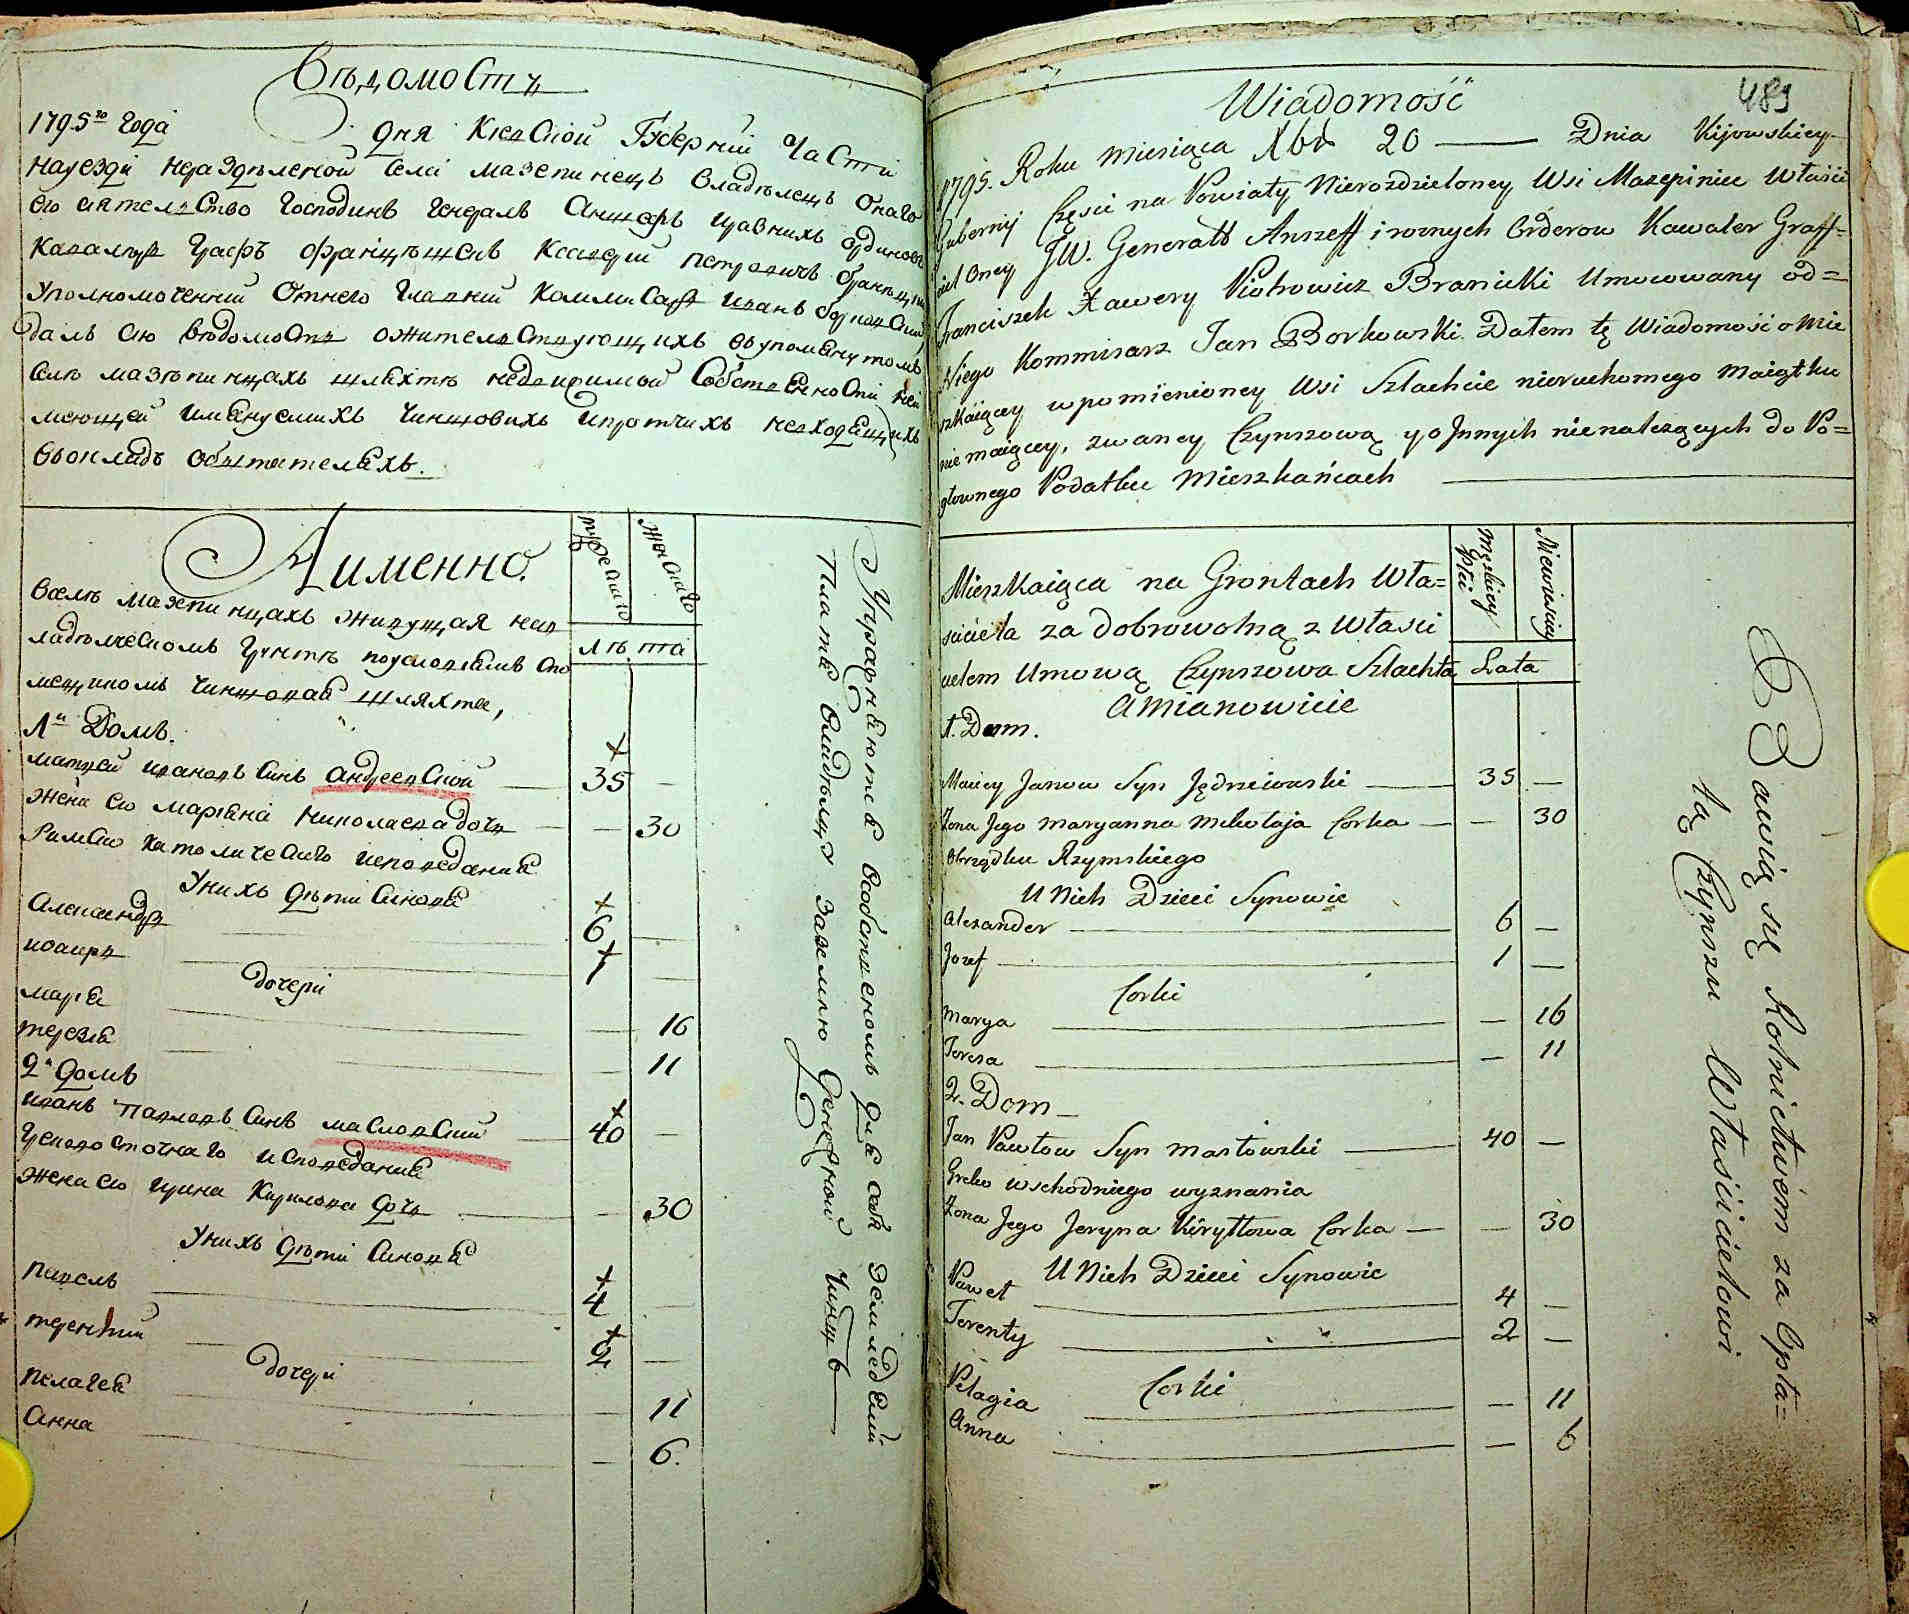 Вѣдомость
1795го Года
дня Киевской Губернїи Части
науезди нераздѣленой села мазепинецъ Владѣлецъ онаго
его сиятелство Господинъ Генералъ Аншефъ иравнихъ ординовъ
кавалеръ Графъ францѣшекъ Ксаверїи петровичъ бранѣцкии
уполномоченїи отнего Главнїи коммисаръ иванъ борковскии
далъ сїю вѣдомость ожителствующихъ воупомянутомъ
селѣ мазѣпинцахъ шляхтѣ недвижимой собственности неи
меющей имянуемихъ чиншовихъ ипротчихъ невходящихъ
воокладъ обытателяхъ.
Аименно.
мужескаго
женскаго
лѣта
Вселѣ мазепинцахъ живущая нав
ладѣлческомъ Грунтѣ поусловїямъ спо
мещикомъ чиншовая шляхта,
1й Домъ.
матвей ивановъ синъ андреевской 35 —
жена его марїяна николаева дочь — 30
Римско католическаго исповеданїя
Унихъ дѣти Синовя
Александръ 6 —
иосифъ 1 —
дочери
марїя — 16
терезїя — 11
2й домъ
иванъ павловъ синъ масловский 40 —
греково сточнаго исповеданїя
жена его ирина Кирилова дочь — 30
Унихъ дѣти Синовя
павелъ 4 —
терентий 2 —
дочери
пелагея — 11
Анна — 6.
Упражняются всобственномъ для себя земледелии
платя владѣлцу заземлю денежной чиншъ
489
Wiadomość
1795. Roku Miesiąca Xbra 20 — Dnia Kijowskiey
Gubernij Częsci na Powiaty Nierozdzieloney Wsi Mazepiniec Właści
ciel Oney JW. Generałł Anszeff i roznych Orderow Kawaler Graff=
Franciszek Xawery Piotrowicz Branicki Umocowany od=
Niego Kommisarz Jan Borkowski Dałem tę Wiadomość o Mie
szkaiącey w pomienioney Wsi Szlachcie nieruchomego Maiątku
nie maiącey, zwaney Czynszową y o Innych nienalezących do Po=
głownego Podatku Mieszkańcach
Męskiey Płci
Niewiesciey
Lata
Mieszkaiąca na Grontach Wła=
sciciela za dobrowolną z Własci
cielem Umową Czynszowa Szlachta
A Mianowicie
1. Dom.
Maciey Janow Syn Jędrzeiowski 35 —
Zona Jego Maryanna Mikołaja Corka — 30
Obrządku Rzymskiego
U Nich Dzieci Synowie
Alexander 6 —
Jozef 1 —
Corki
Marya — 16
Teresa — 11
2. Dom
Jan Pawłow Syn Masłowski 40 —
Greko wschodniego wyznania
Zona Jego Jeryna Kiryłłowa Corka — 30
U Nich Dzieci Synowie
Paweł 4 —
Terenty 2 —
Corki
Pelagia — 11
Anna — 6
Bawią się Rolnictwem za Opła=
tą Czynszu Właścicielowi